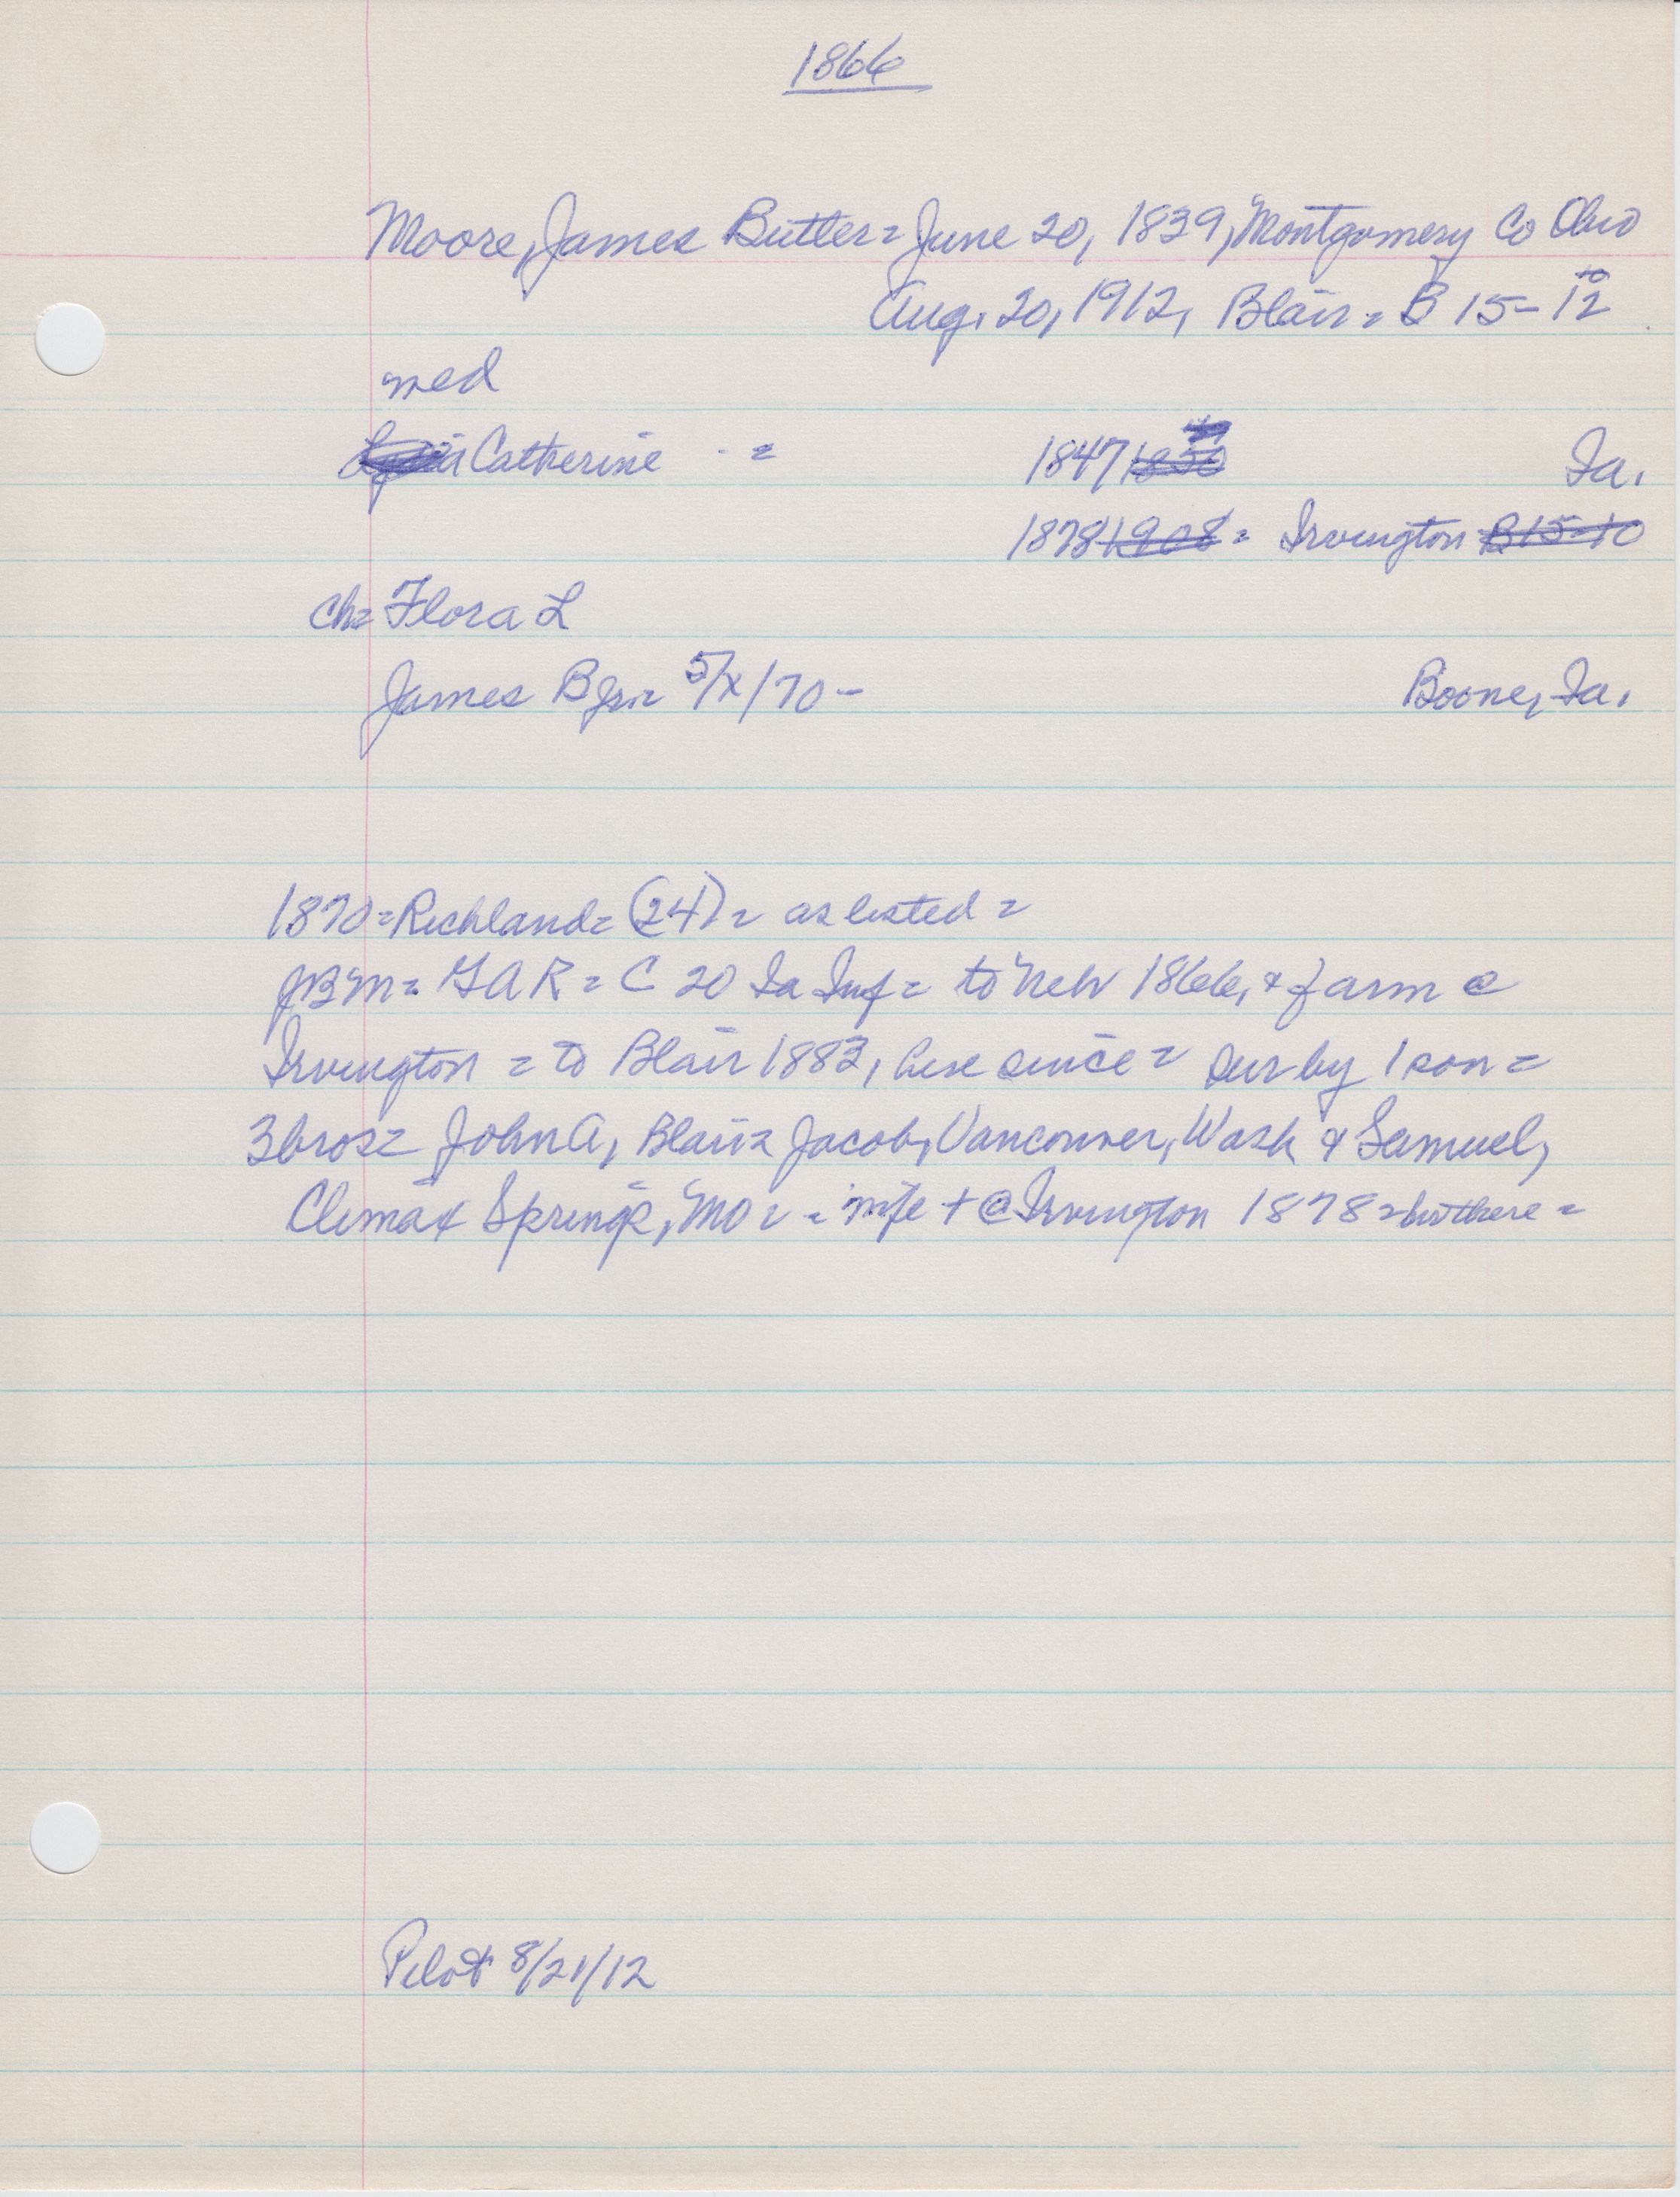 1866
Moore, James Butler = June 20, 1839, Montgomery Co Ohio
Aug. 20, 1912, Blair = B 15-12
10
med
Catherine = 1847 1850 Ia.
1878 1908 = Irvington B15-10
ch = Flora L
James B Jr = 5/x/70 - Boone, Ia.
1870 = Richland = (24) = as listed =
JBM = GAR = C 20 Ia Inf = to Neb 1866, + farm @
Irvington = to Blair 1883, here since = sur by 1 son =
3 bros = John A, Blair = Jacob, Vancouver, Wash & Samuel,
Climax Springs, Mo = = wife + @ Irvington 1878 = bur there =
Pilot 8/21/12